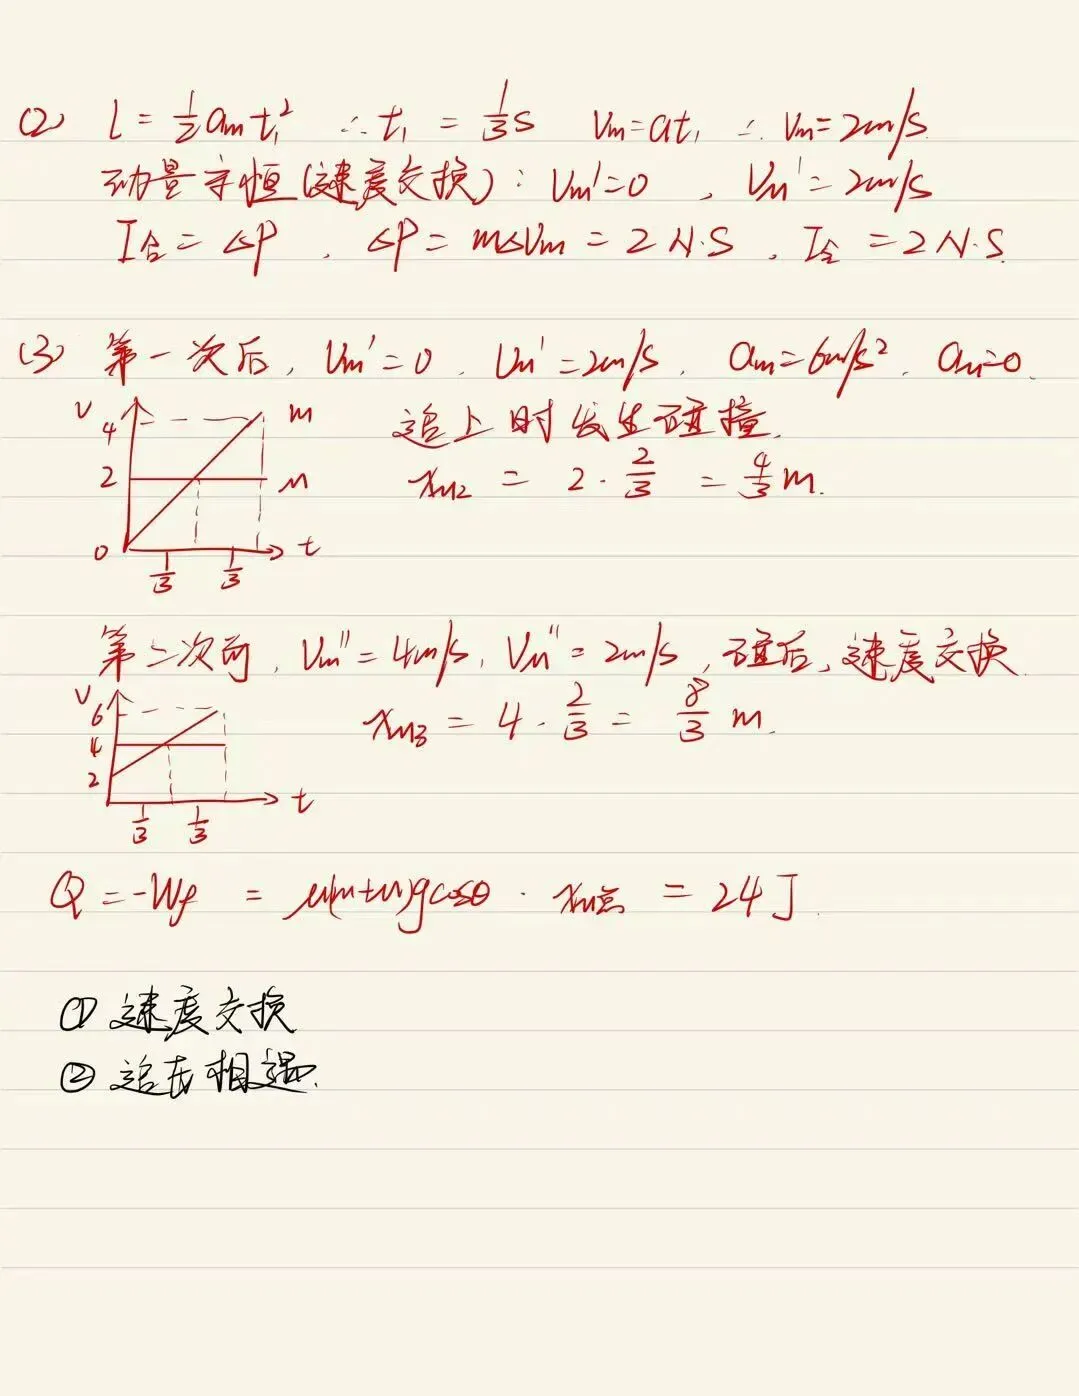 (2) l = 1/2 aₘ t₁² ∴ t₁ = 1/3 s vₘ = at₁ ∴ vₘ = 2m/s
动量守恒(速度交换): vₘ' = 0 , v_M' = 2m/s
I合 = ΔP , ΔP = mΔvₘ = 2 N·S , I合 = 2 N·S.
(3) 第一次后, vₘ' = 0 , v_M' = 2m/s , aₘ = 6m/s² , a_M = 0.
v 4 2 0 m M 1/3 1/3 t
追上时发生碰撞.
x_M2 = 2 · 2/3 = 4/3 m.
第二次前, vₘ'' = 4m/s, v_M'' = 2m/s, 碰后, 速度交换.
v 6 4 2 1/3 1/3 t
x_M3 = 4 · 2/3 = 8/3 m.
Q = -Wf = μ(m+M)gcosθ · x_M总 = 24 J.
① 速度交换
② 追及相遇.